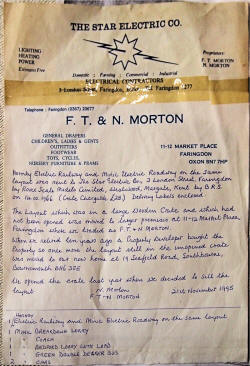 THE STAR ELECTRIC CO.
LIGHTING
HEATING
POWER
Estimates Free
Proprietors:
F. T. MORTON
N. MORTON
Domestic : Farming : Commercial : Industrial
ELECTRICAL CONTRACTORS
Faringdon
Telephone: Faringdon (0367) 20677
F. T. & N. MORTON
GENERAL DRAPERS
CHILDREN'S, LADIES & GENTS
OUTFITTERS
FOOTWEAR
TOYS, CYCLES,
NURSERY FURNITURE & PRAMS
11-12 MARKET PLACE
FARINGDON
OXON SN7 7HP
Hornby Electric Railway and Minic Electric Roadway on the same
layout was sent to The Star Electric Co, 3 London Street, Faringdon
by Rovex Scale Models Limited, Westwood, Margate, Kent by B.R.S.
on Delivery labels enclosed
The layout which was in a large Wooden Crate and which had
not been opened was moved to larger premises at 11-12 Market Place,
Faringdon which we traded as F.T & N Morton.
When we retired ten years ago a Property developer bought the
Property so once more the layout still in the unopened crate
was moved to our new home at 19 Seafield Road, Southbourne,
Bournemouth BH6 3JE
We opened the crate last year when we decided to sell the
layout
N. Morton
F.T. & N MORTON
21st November 1995
HORNBY
Electric Railway and Minic Electric Roadway on the same layout
1 MINIC BREAKDOWN LORRY
COACH
BEDFORD LORRY WITH LOAD
GREEN DOUBLE DECKER BUS
CARS